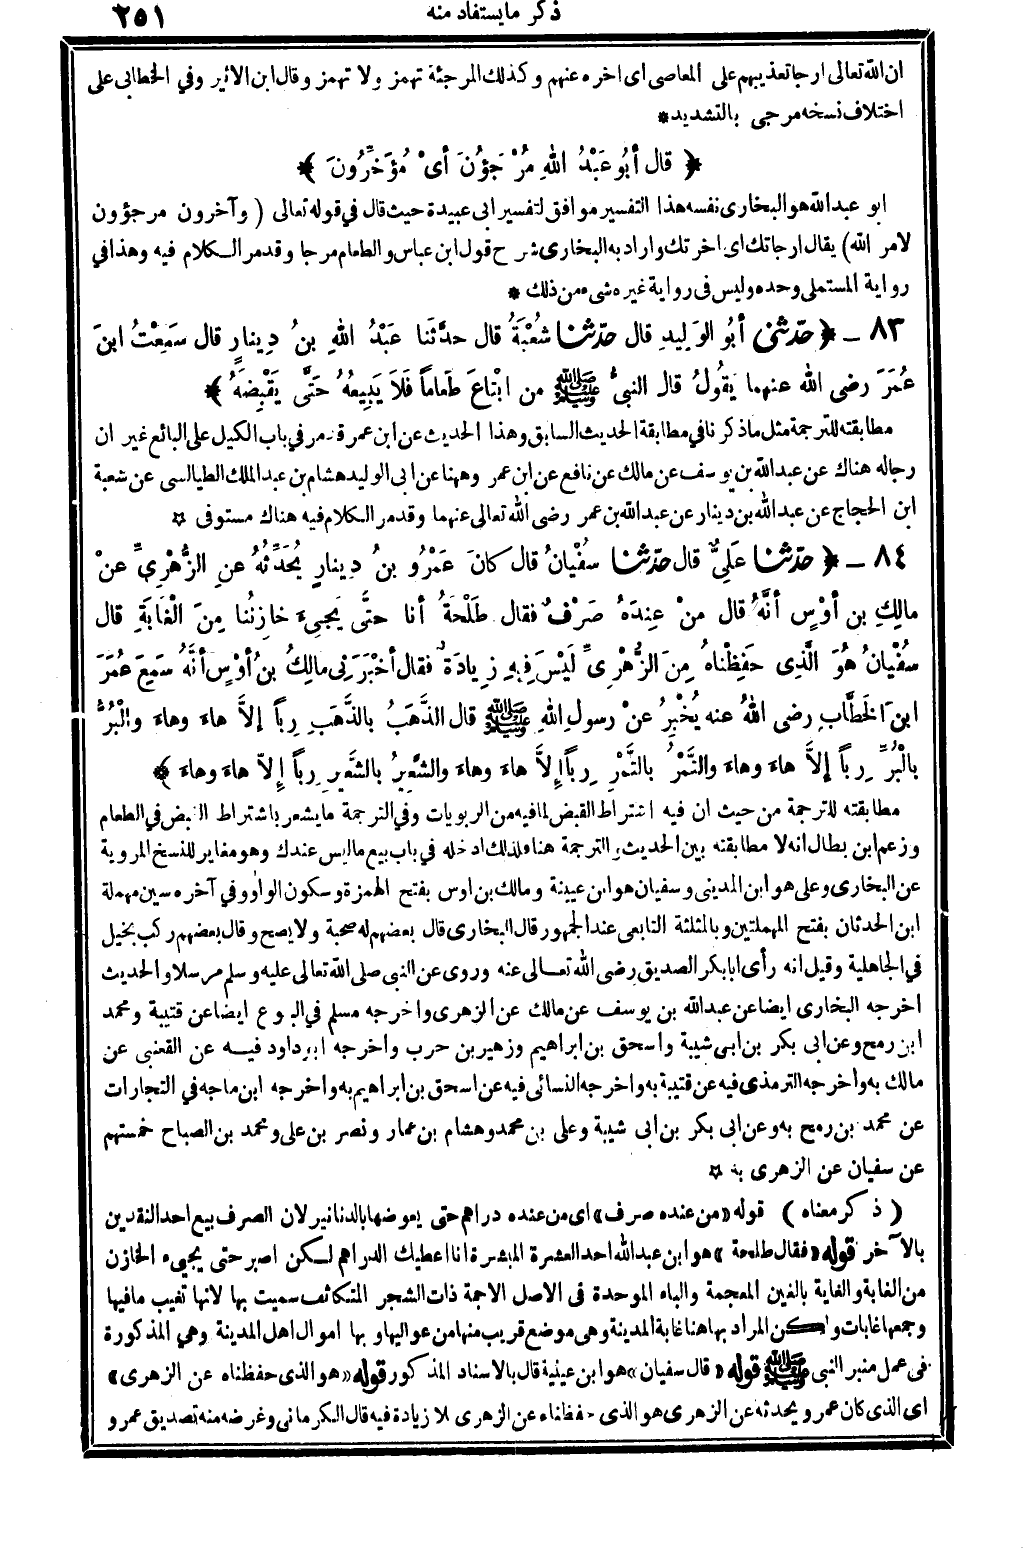 ذكر مايستفاد منه ٢٥١
ان الله تعالى ارجا تعذيبهم على المعاصى اى اخره عنهم وكذلك المرجئة تهمز ولا تهمز وقال ابن الاثير وفي الخطابى على
اختلاف نسخه مرجى بالتشديد *
﴿ قال أبُو عَبْدُ اللهِ مُرْجَؤُنَ أىْ مُؤَخَّرُونَ ﴾
ابو عبدالله هو البخارى نفسه هذا التفسير موافق لتفسير ابى عبيدة حيث قال في قوله تعالى ( وآخرون مرجؤون
لامر الله) يقال ارجاتك اى اخرتك واراد به البخارى شرح قول ابن عباس والطعام مرجا وقدمر الـكلام فيه وهذا في
رواية المستملى وحده وليس فى رواية غيره شىء من ذلك *
٨٣ ــ ﴿ حدّثنى أبُو الوَلِيدِ قال حدّثنا شُعْبَةُ قال حدَّثَنا عَبْدُ اللهِ بنُ دِينارٍ قال سَمِعْتُ ابنَ
عُمَرَ رضى الله عنهما يَقُولُ قال النبىُّ ﷺ من ابْتاعَ طَعاماً فَلاَ يَبِيعُهُ حَتَّى يَقْبِضَهُ ﴾
مطابقته للترجمة مثل ماذكرنا في مطابقة الحديث السابق وهذا الحديث عن ابن عمر قدمر في باب الكيل على البائع غير ان
رجاله هناك عن عبدالله بن يوسف عن مالك عن نافع عن ابن عمر وههنا عن ابى الوليد هشام بن عبدالملك الطيالسى عن شعبة
ابن الحجاج عن عبدالله بن دينار عن عبدالله بن عمر رضى الله تعالى عنهما وقدمر الـكلام فيه هناك مستوفى ☆
٨٤ ــ ﴿ حدّثنا عَلِىٌّ قال حدّثنا سفْيانُ قال كانَ عَمْرُو بنُ دِينارٍ يُحَدِّثُهُ عنِ الزُّهْرِىِّ عنْ
مالِكِ بنِ أوْسٍ أنَّهُ قال منْ عِنْدَهُ صَرْفٌ فقال طَلْحَةُ أنا حتَّى يَجِىءَ خازِنُنا مِنَ الْغَابَةِ قال
سُفْيانُ هُوَ الَّذِى حَفِظْناهُ مِنَ الزُّهْرِىِّ لَيْسَ فِيهِ زِيادَةٌ فقال أخْبَرَنِى مالِكُ بنُ أوْسٍ أنَّهُ سَمِعَ عُمَرَ
ابنَ الخَطَّابِ رضى اللهُ عنه يُخْبِرُ عنْ رسولِ اللهِ ﷺ قال الذَّهَبُ بالذَّهَبِ رِباً إلاَّ هاءَ وهاءَ والْبُرُّ
بالْبُرِّ رِباً إلاَّ هاءَ وهاءَ والتَّمْرُ بالتَّمْرِ رِباً إلاَّ هاءَ وهاءَ والشَّعِيرُ بالشَّعِيرِ رِباً إلاّ هاءَ وهاءَ ﴾
مطابقته للترجمة من حيث ان فيه اشتراط القبض لمافيه من الربويات وفي الترجمة مايشعر باشتراط القبض في الطعام
وزعم ابن بطال انه لا مطابقته بين الحديث والترجمة هنا فلذلك ادخله في باب بيع ماليس عندك وهو مغاير للنسخ المروية
عن البخارى وعلى هو ابن المدينى وسفيان هو ابن عيينة ومالك بن اوس بفتح الهمزة وسكون الواو وفي آخره سين مهملة
ابن الحدثان بفتح المهملتين وبالمثلثة التابعى عند الجمهور قال البخارى قال بعضهم له صحبة ولا يصح وقال بعضهم ركب الخيل
في الجاهلية وقيل انه رأى ابابكر الصديق رضى الله تعـالى عنه وروى عن النبى صلى الله تعالى عليه وسلم مرسلا والحديث
اخرجه البخارى ايضا عن عبدالله بن يوسف عن مالك عن الزهرى واخرجه مسلم في البيوع ايضا عن قتيبة ومحمد
ابن رمح وعن ابى بكر بن ابى شيبة واسحق بن ابراهيم وزهير بن حرب واخرجه ابو داود فيـه عن القعنبى عن
مالك به واخرجه الترمذى فيه عن قتيبة به واخرجه النسائى فيه عن اسحق بن ابراهيم به واخرجه ابن ماجه في التجارات
عن محمد بن رمح به وعن ابى بكر بن ابى شيبة وعلى بن محمد وهشام بن عمار ونصر بن على ومحمد بن الصباح خمستهم
عن سفيان عن الزهرى به ☆
( ذكر معناه ) قوله «من عنده صرف» اى من عنده دراهم حتى يعوضها بالدنانير لان الصرف بيع احد النقدين
بالآخر قوله «فقال طلحة» هو ابن عبدالله احد العشرة المبشرة انا اعطيك الدراهم لـكن اصبر حتى يجىء الخازن
من الغابة والغابة بالغين المعجمة والباء الموحدة فى الاصل الاجمة ذات الشجر المتكاثف سميت بها لانها تغيب مافيها
وجمعها غابات ولكن المراد بها هنا غابة المدينة وهى موضع قريب منها من عواليها وبها اموال اهل المدينة وهي المذكورة
فى عمل منبر النبى ﷺ قوله «قال سفيان» هو ابن عيينة قال بالاسناد المذكور قوله «هو الذى حفظناه عن الزهرى»
اى الذى كان عمرو يحدثه عن الزهرى هو الذى حفظناه عن الزهرى بلا زيادة فيه قال الكرمانى وغرضه منه تصديق عمرو